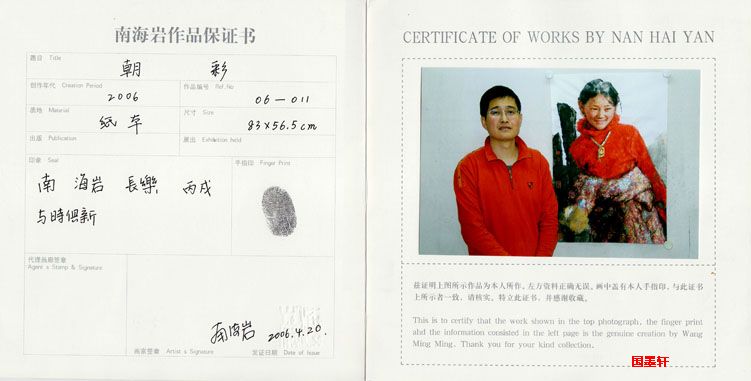 南海岩作品保证书
题目 Title
朝 彩
创作年代 Creation Period
作品编号 Ref.No
2006
06-011
质地 Material
尺寸 Size
纸草
83×56.5cm
出版 Publication
展出 Exhibition held
印章 Seal
手指印 Finger Print
南 海岩 長樂 丙戌
与時俱新
代理画廊签章
Agent s Stamp & Signature
南海岩 2006.4.20.
画家签章 Artist s Signature
发证日期 Date of Issue
CERTIFICATE OF WORKS BY NAN HAI YAN
兹证明上图所示作品为本人所作。左方资料正确无误。画中盖有本人手指印,与此证书
上所示者一致。请核实。特立此证书,并感谢收藏。
This is to certify that the work shown in the top photograph, the finger print
and the information consisted in the left page is the genuine creation by Wang
Ming Ming. Thank you for your kind collection.
国墨轩